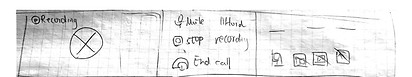 Recording
Mute
stop recording
End call